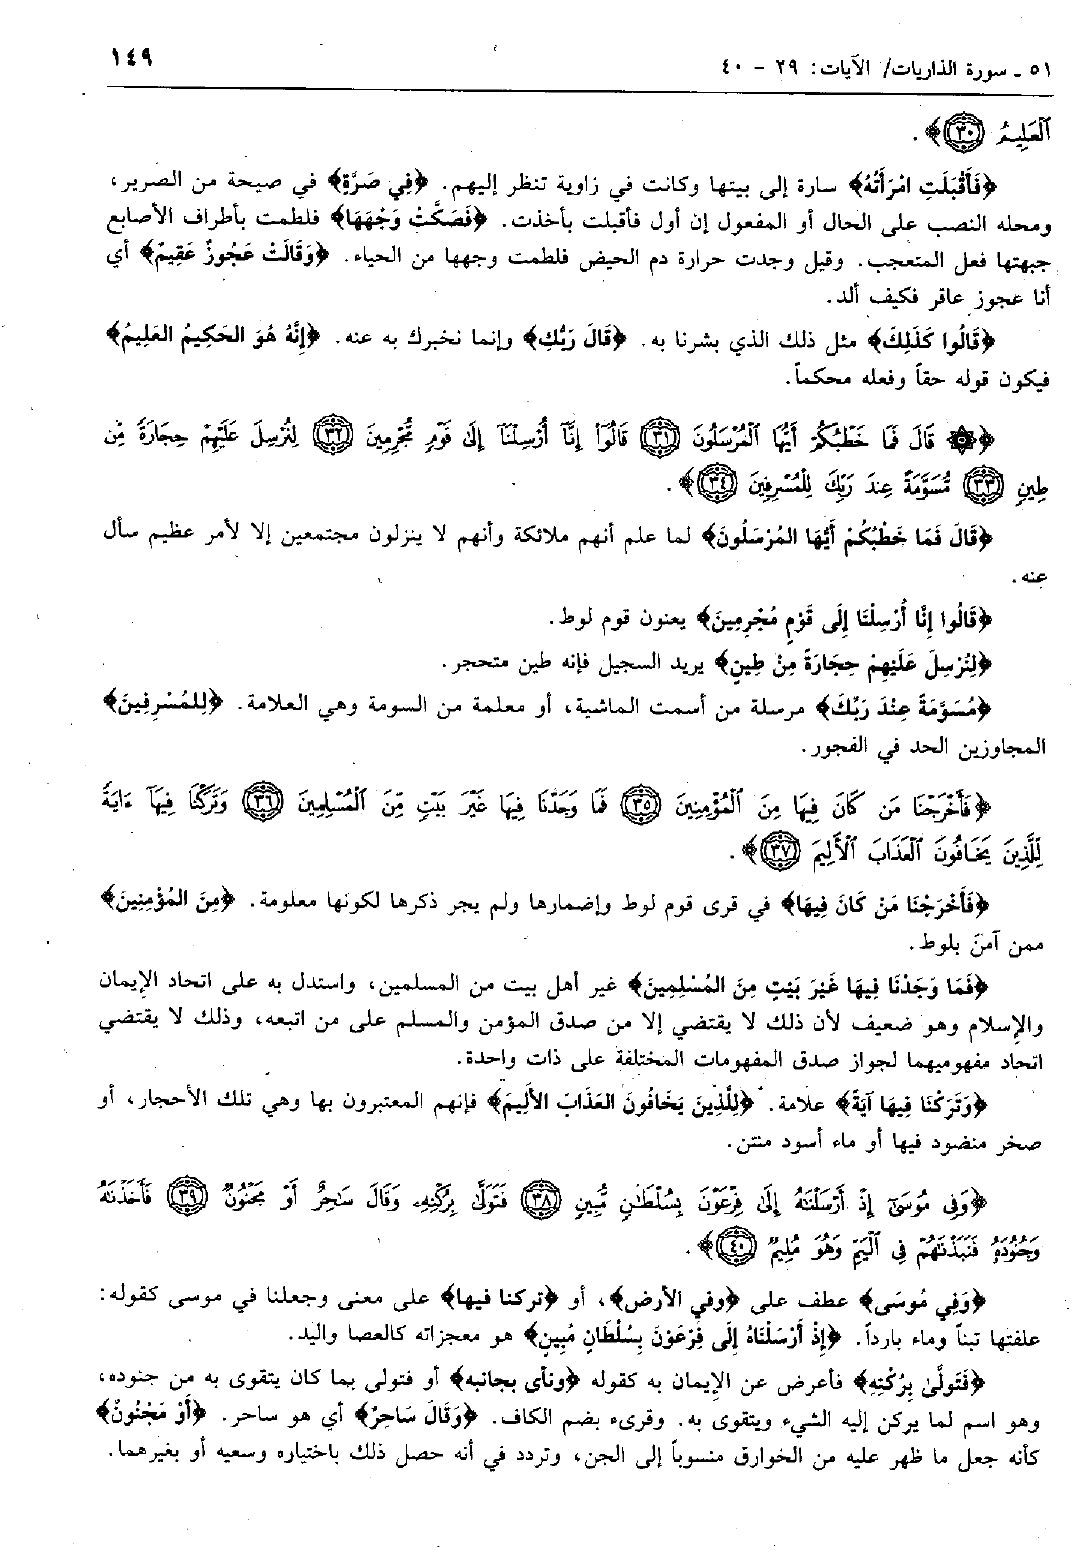 ٥١ ـ سورة الذاريات/ الآيات: ٢٩ - ٤٠ ١٤٩
ٱلْعَلِيمُ (٣٠)﴾.
﴿فَأَقْبَلَتِ امْرَأَتُهُ﴾ سارة إلى بيتها وكانت في زاوية تنظر إليهم. ﴿فِي صَرَّةٍ﴾ في صيحة من الصرير،
ومحله النصب على الحال أو المفعول إن أول فأقبلت بأخذت. ﴿فَصَكَّتْ وَجْهَهَا﴾ فلطمت بأطراف الأصابع
جبهتها فعل المتعجب. وقيل وجدت حرارة دم الحيض فلطمت وجهها من الحياء. ﴿وَقَالَتْ عَجُوزٌ عَقِيمٌ﴾ أي
أنا عجوز عاقر فكيف ألد.
﴿قَالُوا كَذَلِكَ﴾ مثل ذلك الذي بشرنا به. ﴿قَالَ رَبُّكِ﴾ وإنما نخبرك به عنه. ﴿إِنَّهُ هُوَ الحَكِيمُ العَلِيمُ﴾
فيكون قوله حقاً وفعله محكماً.
﴿۞ قَالَ فَمَا خَطْبُكُمْ أَيُّهَا ٱلْمُرْسَلُونَ (٣١) قَالُوٓاْ إِنَّآ أُرْسِلْنَآ إِلَىٰ قَوْمٍ مُّجْرِمِينَ (٣٢) لِنُرْسِلَ عَلَيْهِمْ حِجَارَةً مِّن
طِينٍ (٣٣) مُّسَوَّمَةً عِندَ رَبِّكَ لِلْمُسْرِفِينَ (٣٤)﴾.
﴿قَالَ فَمَا خَطْبُكُمْ أَيُّهَا المُرْسَلُونَ﴾ لما علم أنهم ملائكة وأنهم لا ينزلون مجتمعين إلا لأمر عظيم سأل
عنه.
﴿قَالُوا إِنَّا أُرْسِلْنَا إِلَى قَوْمٍ مُجْرِمِينَ﴾ يعنون قوم لوط.
﴿لِنُرْسِلَ عَلَيْهِمْ حِجَارَةً مِنْ طِينٍ﴾ يريد السجيل فإنه طين متحجر.
﴿مُسَوَّمَةً عِنْدَ رَبِّكَ﴾ مرسلة من أسمت الماشية، أو معلمة من السومة وهي العلامة. ﴿لِلمُسْرِفِينَ﴾
المجاوزين الحد في الفجور.
﴿فَأَخْرَجْنَا مَن كَانَ فِيهَا مِنَ ٱلْمُؤْمِنِينَ (٣٥) فَمَا وَجَدْنَا فِيهَا غَيْرَ بَيْتٍ مِّنَ ٱلْمُسْلِمِينَ (٣٦) وَتَرَكْنَا فِيهَآ ءَايَةً
لِّلَّذِينَ يَخَافُونَ ٱلْعَذَابَ ٱلْأَلِيمَ (٣٧)﴾.
﴿فَأَخْرَجْنَا مَنْ كَانَ فِيهَا﴾ في قرى قوم لوط وإضمارها ولم يجر ذكرها لكونها معلومة. ﴿مِنَ المُؤْمِنِينَ﴾
ممن آمنَ بلوط.
﴿فَمَا وَجَدْنَا فِيهَا غَيْرَ بَيْتٍ مِنَ المُسْلِمِينَ﴾ غير أهل بيت من المسلمين، واستدل به على اتحاد الإيمان
والإسلام وهو ضعيف لأن ذلك لا يقتضي إلا من صدق المؤمن والمسلم على من اتبعه، وذلك لا يقتضي
اتحاد مفهوميهما لجواز صدق المفهومات المختلفة على ذات واحدة.
﴿وَتَرَكْنَا فِيهَا آيَةً﴾ علامة. ﴿لِلَّذِينَ يَخَافُونَ العَذَابَ الأَلِيمَ﴾ فإنهم المعتبرون بها وهي تلك الأحجار، أو
صخر منضود فيها أو ماء أسود منتن.
﴿وَفِى مُوسَىٰٓ إِذْ أَرْسَلْنَٰهُ إِلَىٰ فِرْعَوْنَ بِسُلْطَٰنٍ مُّبِينٍ (٣٨) فَتَوَلَّىٰ بِرُكْنِهِۦ وَقَالَ سَٰحِرٌ أَوْ مَجْنُونٌ (٣٩) فَأَخَذْنَٰهُ
وَجُنُودَهُۥ فَنَبَذْنَٰهُمْ فِى ٱلْيَمِّ وَهُوَ مُلِيمٌ (٤٠)﴾.
﴿وَفِي مُوسَى﴾ عطف على ﴿وفي الأرض﴾، أو ﴿تركنا فيها﴾ على معنى وجعلنا في موسى كقوله:
علفتها تبناً وماء بارداً. ﴿إِذْ أَرْسَلْنَاهُ إِلَى فِرْعَوْنَ بِسُلْطَانٍ مُبِينٍ﴾ هو معجزاته كالعصا واليد.
﴿فَتَولَّى بِرُكْنِهِ﴾ فأعرض عن الإيمان به كقوله ﴿ونأى بجانبه﴾ أو فتولى بما كان يتقوى به من جنوده،
وهو اسم لما يركن إليه الشيء ويتقوى به. وقرىء بضم الكاف. ﴿وَقَالَ سَاحِرٌ﴾ أي هو ساحر. ﴿أَوْ مَجْنُونٌ﴾
كأنه جعل ما ظهر عليه من الخوارق منسوباً إلى الجن، وتردد في أنه حصل ذلك باختياره وسعيه أو بغيرهما.